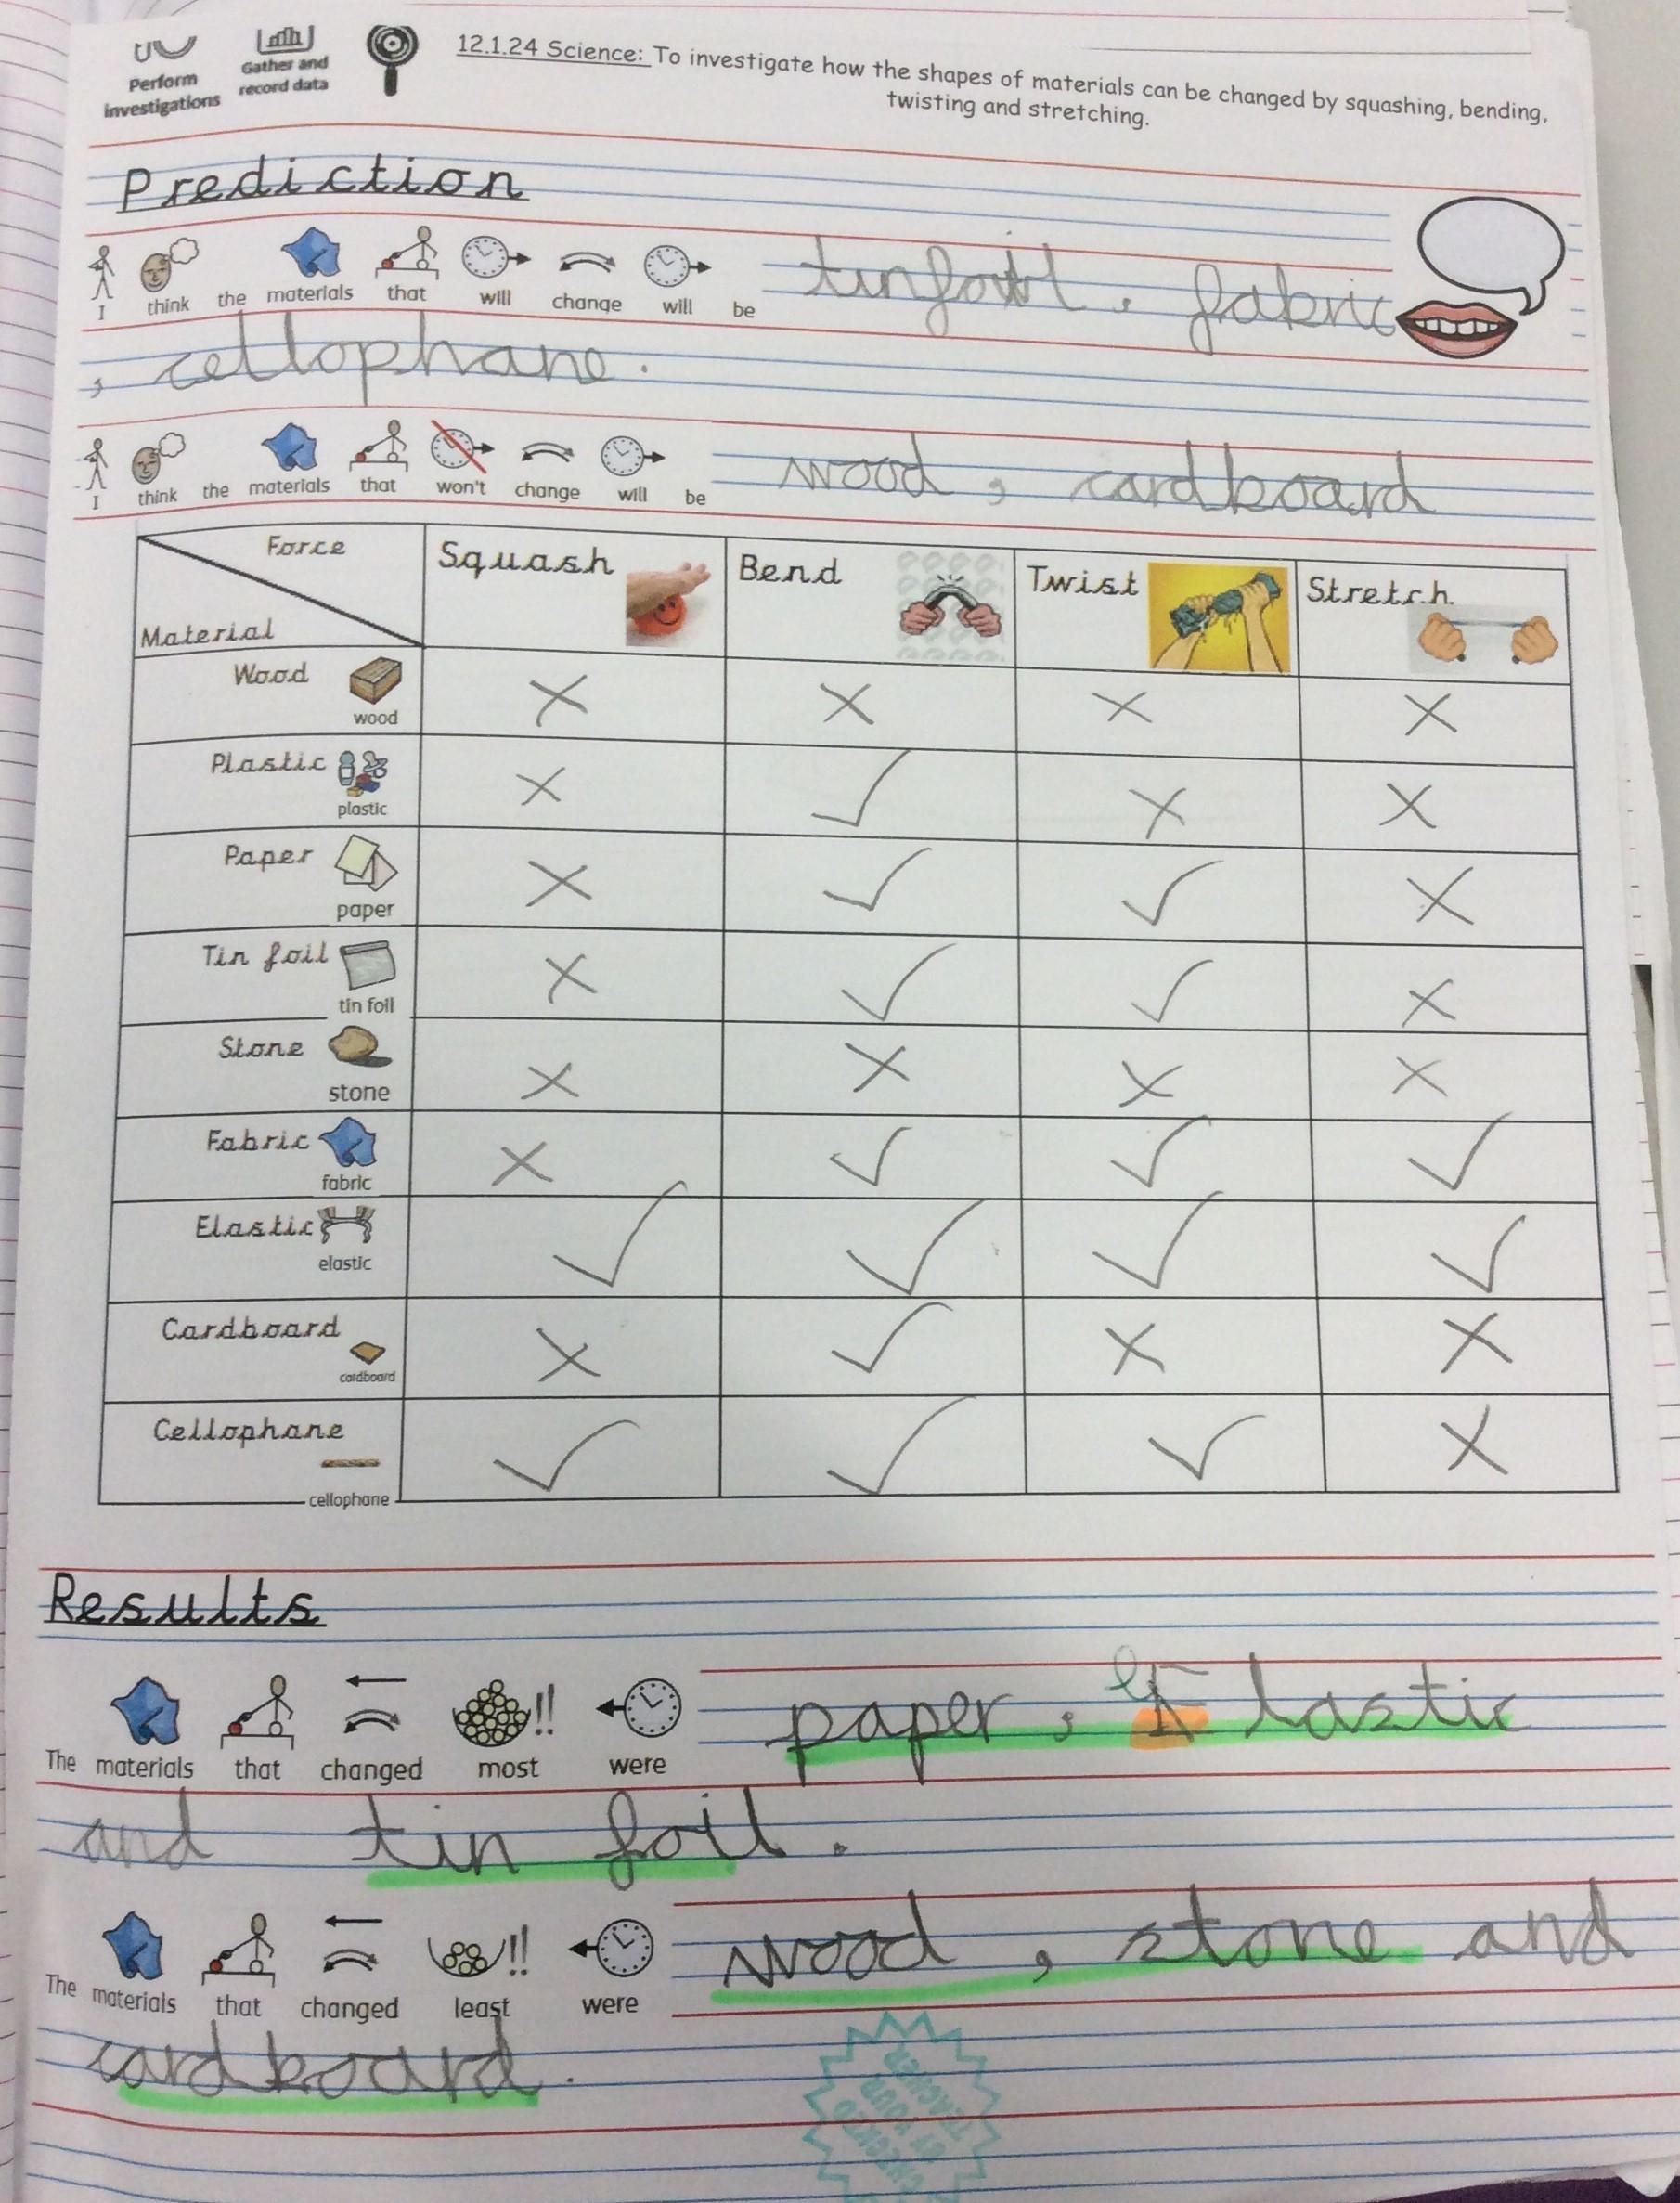 Perform investigations
Gather and record data
12.1.24 Science: To investigate how the shapes of materials can be changed by squashing, bending,
twisting and stretching.
Prediction
I think the materials that will change will be tinfoil, fabric
, cellophane.
I think the materials that won't change will be wood, cardboard
Force Squash Bend Twist Stretch
Material
Wood X X X X
wood
Plastic X ✓ X X
plastic
Paper X ✓ ✓ X
paper
Tin foil X ✓ ✓ X
tin foil
Stone X X X X
stone
Fabric X ✓ ✓ ✓
fabric
Elastic ✓ ✓ ✓ ✓
elastic
Cardboard X ✓ X X
cardboard
Cellophane ✓ ✓ ✓ X
cellophane
Results
The materials that changed most !! were paper, elastic
and tin foil.
The materials that changed least !! were wood, stone and
cardboard.
CHECKED
BY YOUR
TEACHER